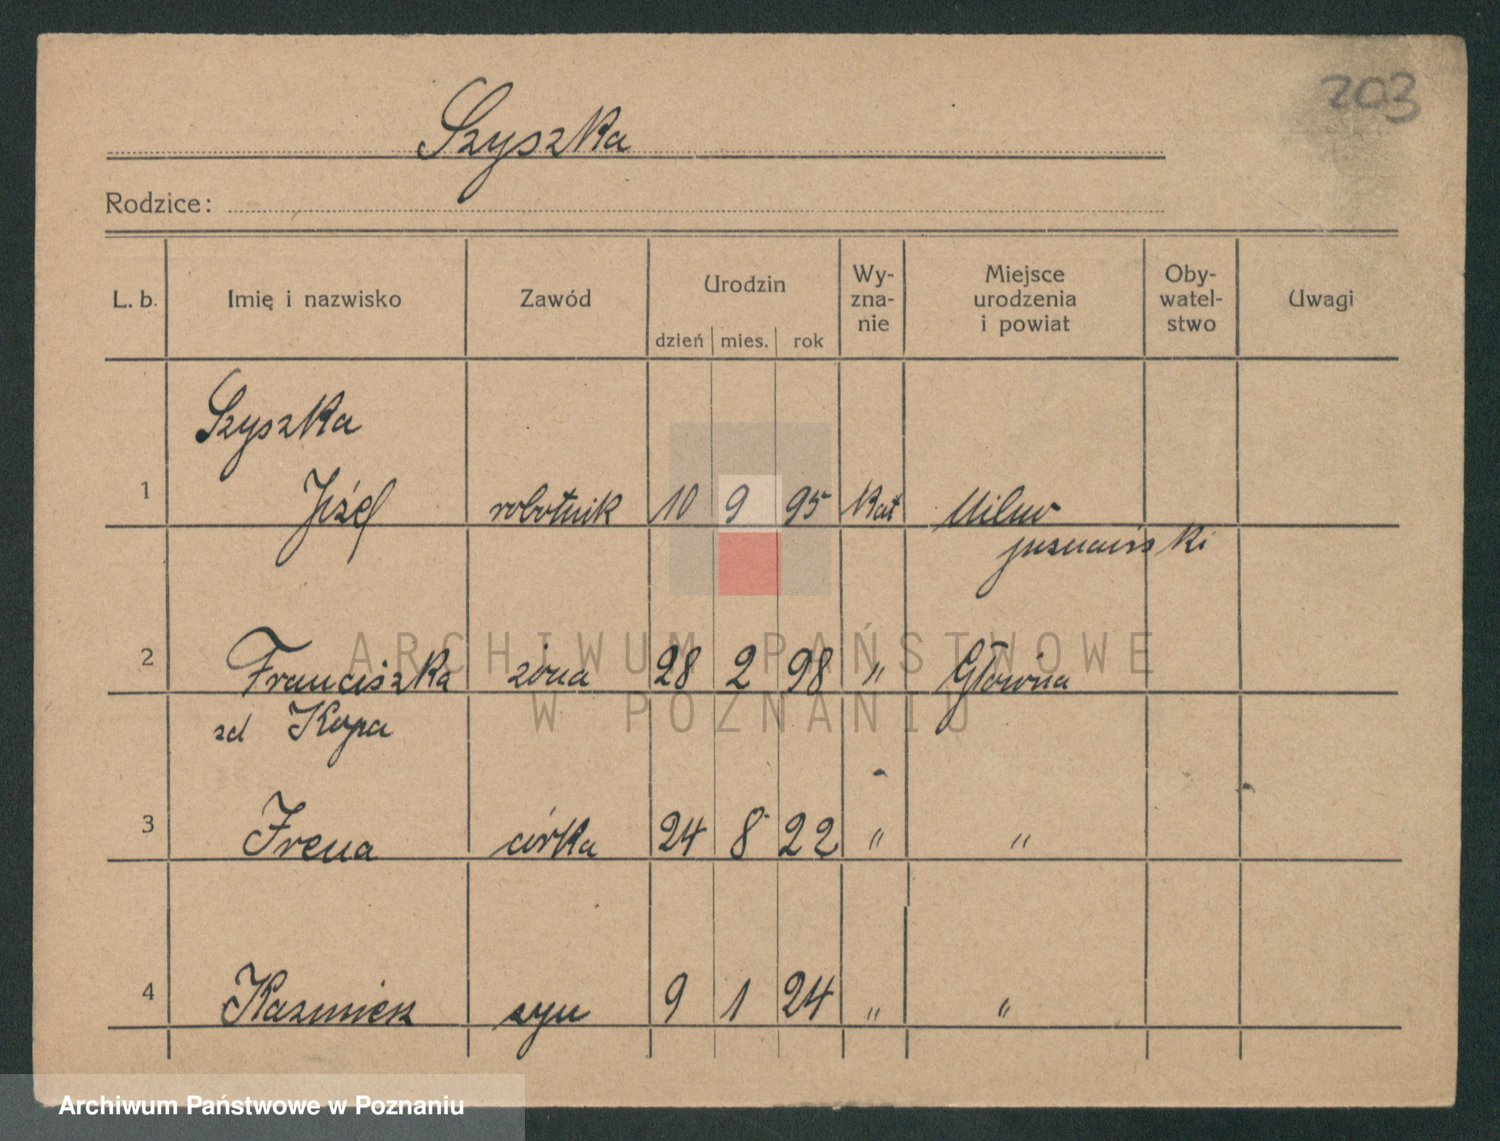 203
Szyszka
Rodzice:
L. b. Imię i nazwisko Zawód Urodzin dzień mies. rok Wy-zna-nie Miejsce urodzenia i powiat Oby-watel-stwo Uwagi
Szyszka
1 Józef robotnik 10 9 95 Kat
poznański
2 Franciszka żona 28 2 98 " Główna
zd Kopa
3 Irena córka 24 8 22 " "
4 Kazimierz syn 9 1 24 " "
ARCHIWUM PAŃSTWOWE
W POZNANIU
Archiwum Państwowe w Poznaniu